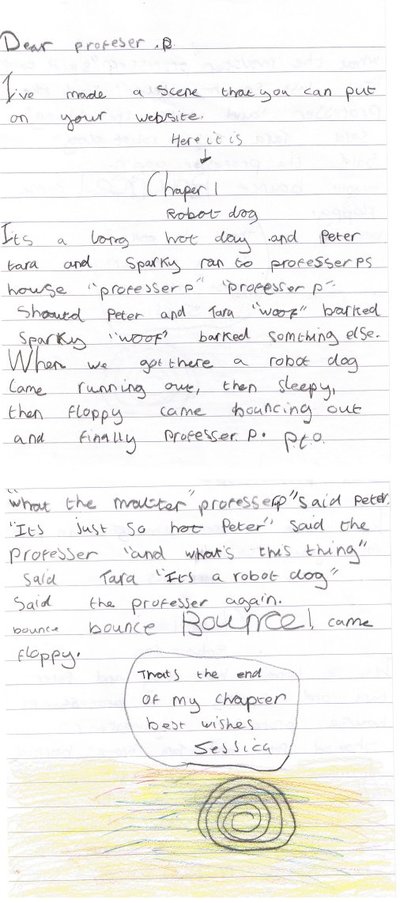 Dear profeser .P
I've made a scene that you can put
on your website.
Here it is
Chaper 1
Robot dog
Its a long hot day .and Peter
tara and Sparky ran to professer ps
house "professer p" "professer p"
Shouted Peter and Tara "woof" barked
Sparky "woof" barked somthing else.
When we got there a robot dog
came running out, then sleepy,
then floppy came bouncing out
and finally professer P. pto.
"what the matter" professer p" said Peter.
"It's just so hot Peter" said the
professer "and what's this thing"
said Tara "It's a robot dog"
said the professer again.
bounce bounce Bounce! came
floppy.
That's the end
of my chapter
best wishes
Jessica